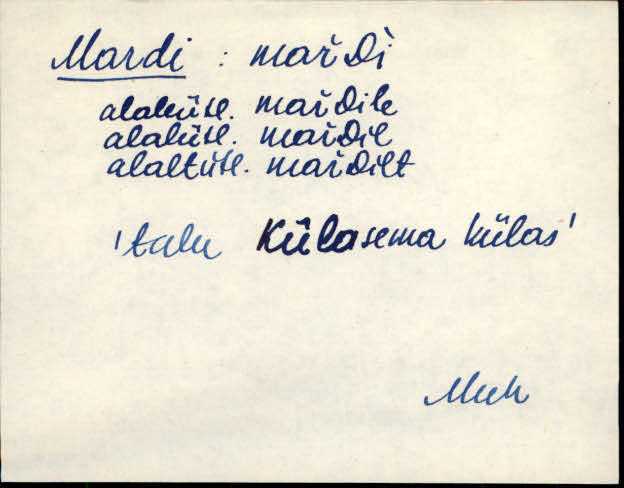 Mardi : mař​Dì
alaleütl. mařDile
alalütl. mařDil
alaltütl. mařDilt
'talu Külasema külas'
Muh